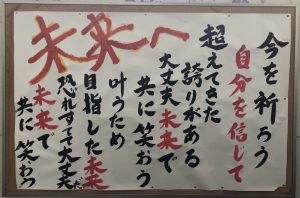 未来へ
今を祈ろう
自分を信じて
超えてきた
誇りがある
大丈夫未来で
共に笑おう
叶うため
目指した未来
恐れずて大丈夫だ
未来で
共に笑おう